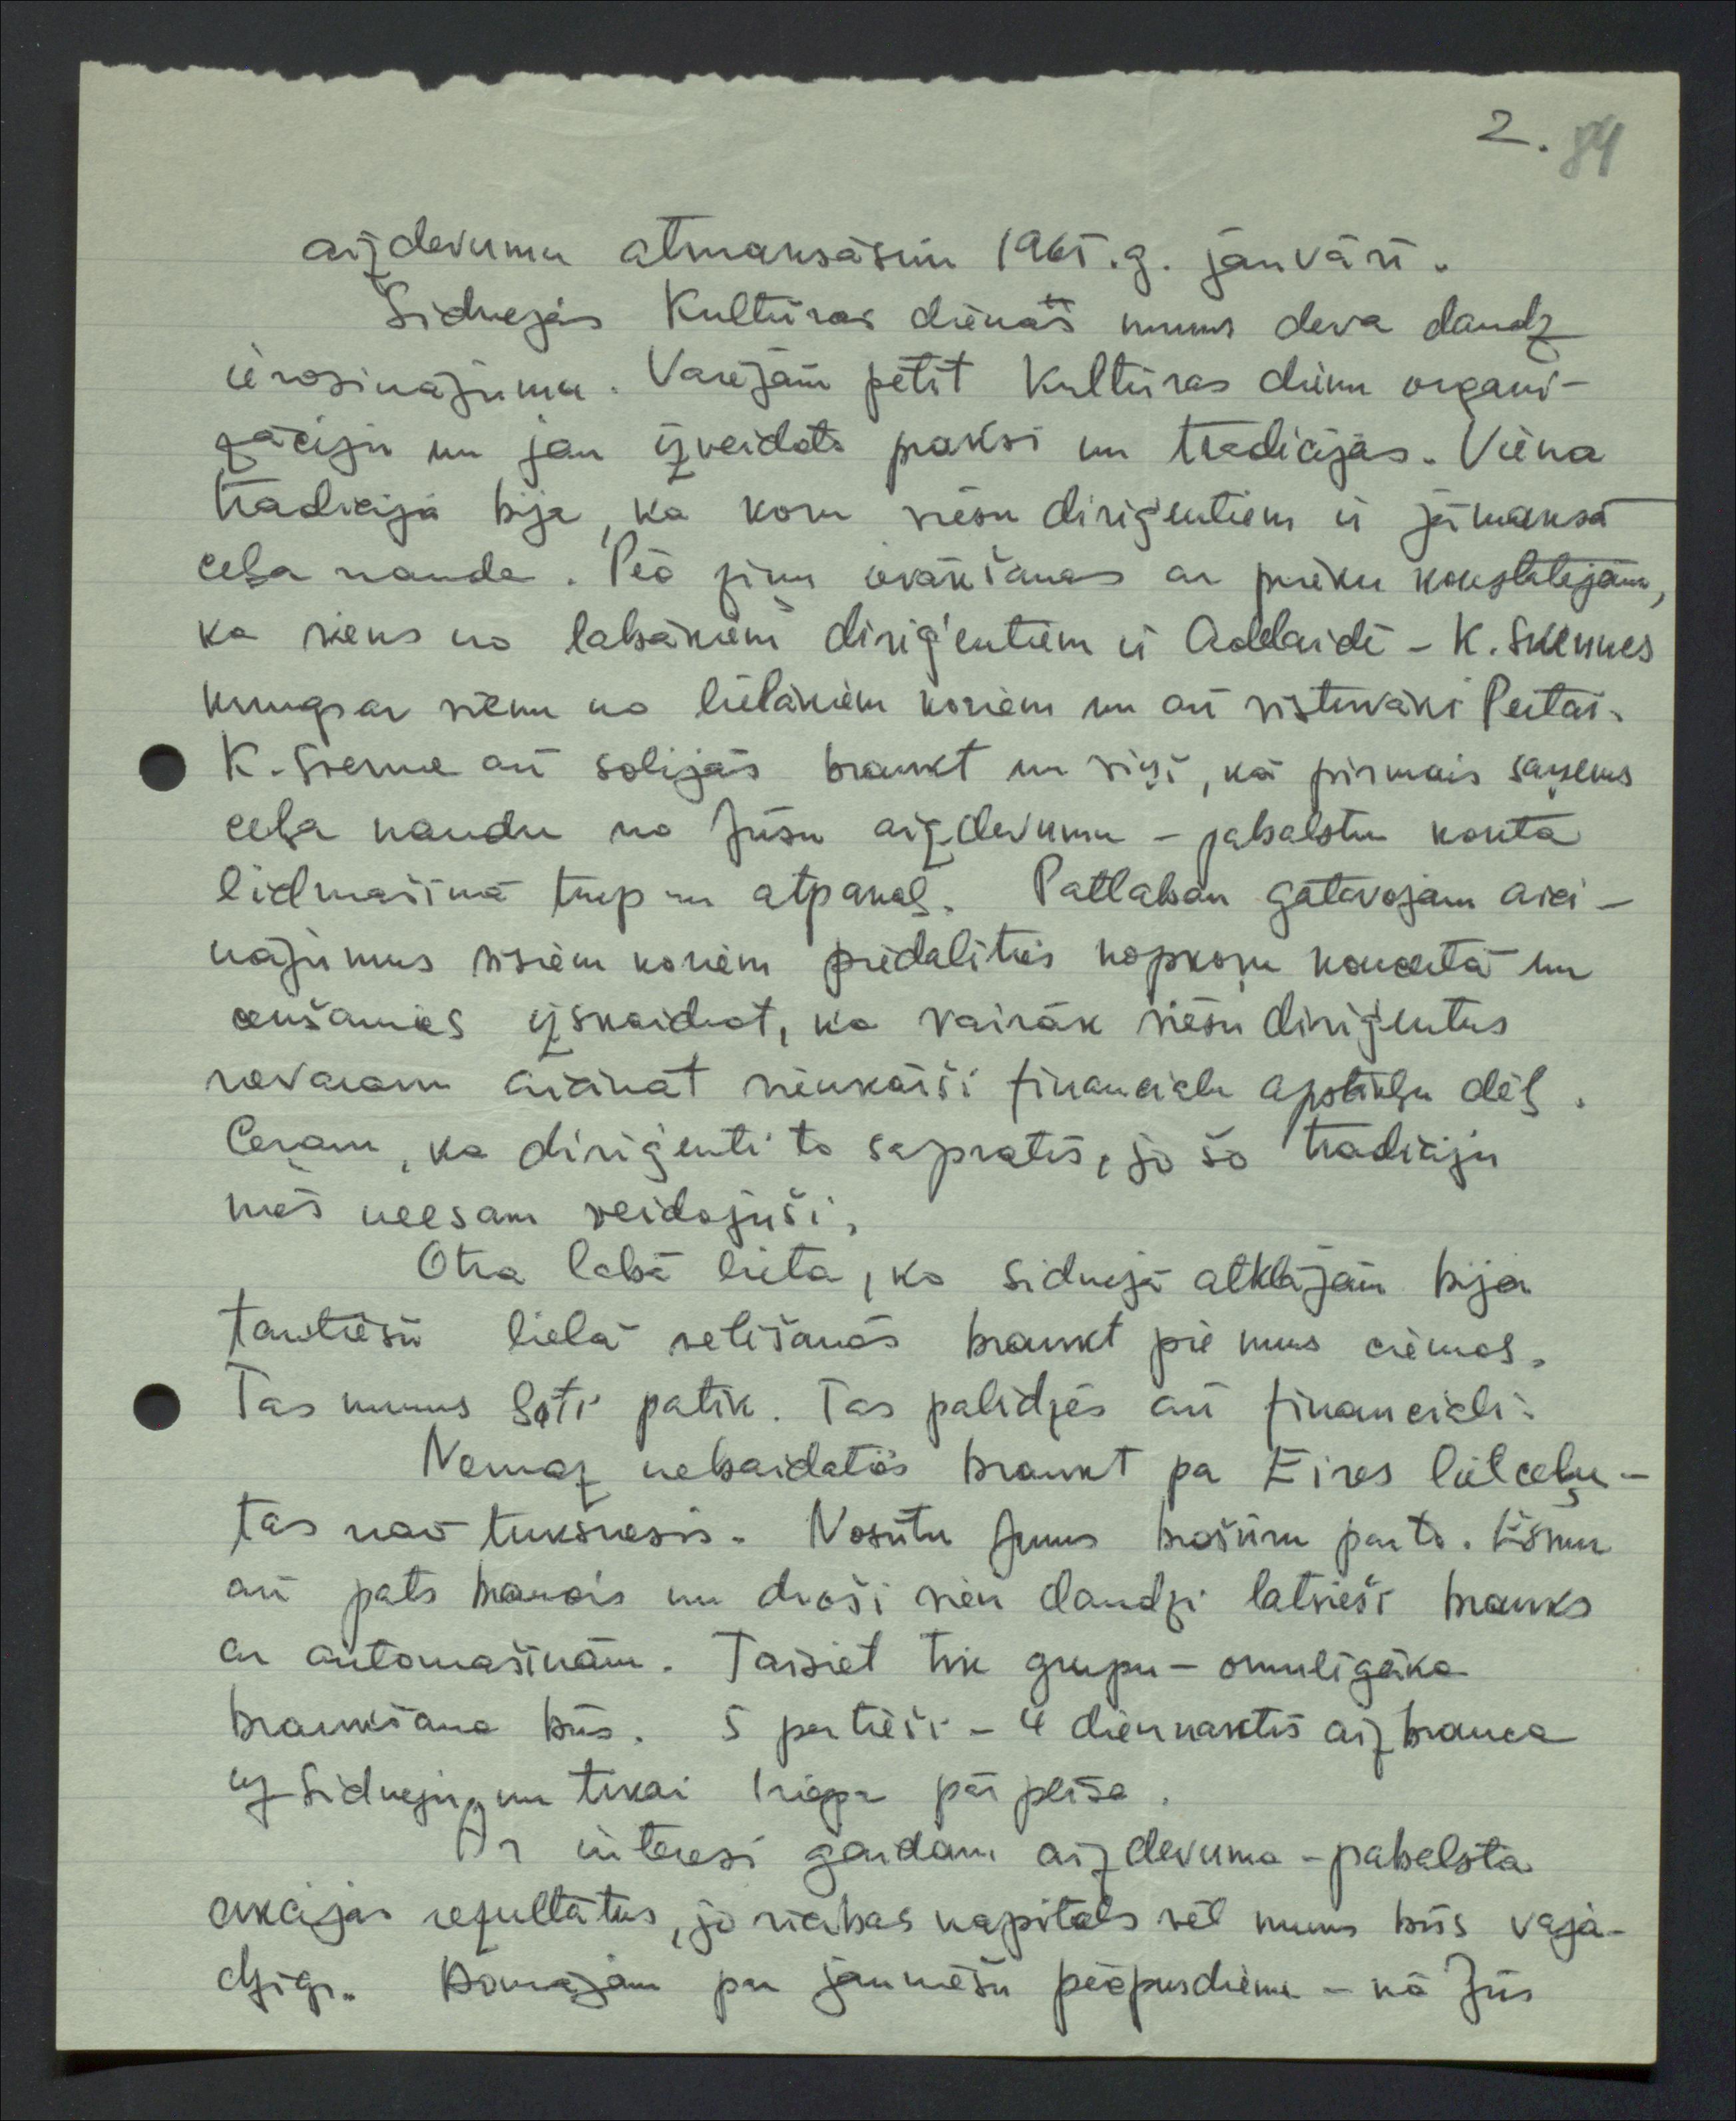 2. 84
aizdevumu atmaksāsim 1965.g. janvārī.
Sidnejas Kultūras dienas mums deva daudz
ierosinājumu. Varējām pētīt Kultūras dienu organi-
zāciju un jau izveidoto praksi un tradicijas. Viena
tradicija bija, ka koru viesu diriģentiem ir jāmaksā
ceļa nauda. Pēc ziņu ievākšanas ar prieku konstatējām,
ka viens no labākiem diriģentiem ir Adelaidē - K. Svennes
kungs ar vienu no lielākiem koriem un arī vistuvāki Pertai.
K. Svenne arī solījās braukt un viņš, kā pirmais saņems
ceļa naudu no Jūsu aizdevumu - pabalstu konta
lidmašīnā turp un atpakaļ. Patlaban gatavojam aici-
nājumus visiem koriem piedalīties kopkoŗu koncertā un
cenšamies izskaidrot, ka vairāk viesu diriģentus
nevaram aicināt vienkārši financiālu apstākļu dēļ.
Ceram, ka diriģenti to sapratīs, jo šo tradiciju
mēs neesam veidojuši.
Otra labā lieta, ko Sidnejā atklājām bija
tautiešu lielā vēlēšanās braukt pie mums ciemos.
Tas mums ļoti patīk. Tas palīdzēs arī financiāli.
Nemaz nebaidaties braukt pa Eires lielceļu -
tas nav tuksnesis. Nosūtu Jums brošūru par to.
arī pats braucis un droši vien daudzi latvieši brauks
ar automašīnām. Taisiet tik grupu - omulīgāka
braukšana būs. 5 pertieši - 4 diennaktīs aizbrauca
uz Sidneju un tikai 1 riepa pārplīsa.
Ar interesi gaidam aizdevuma - pabalsta
akcijas rezultātus, jo riebas kapitāls vēl mums būs vaja-
dzīgs. Domājam par jauniešu pēcpusdienu - kā Jūs